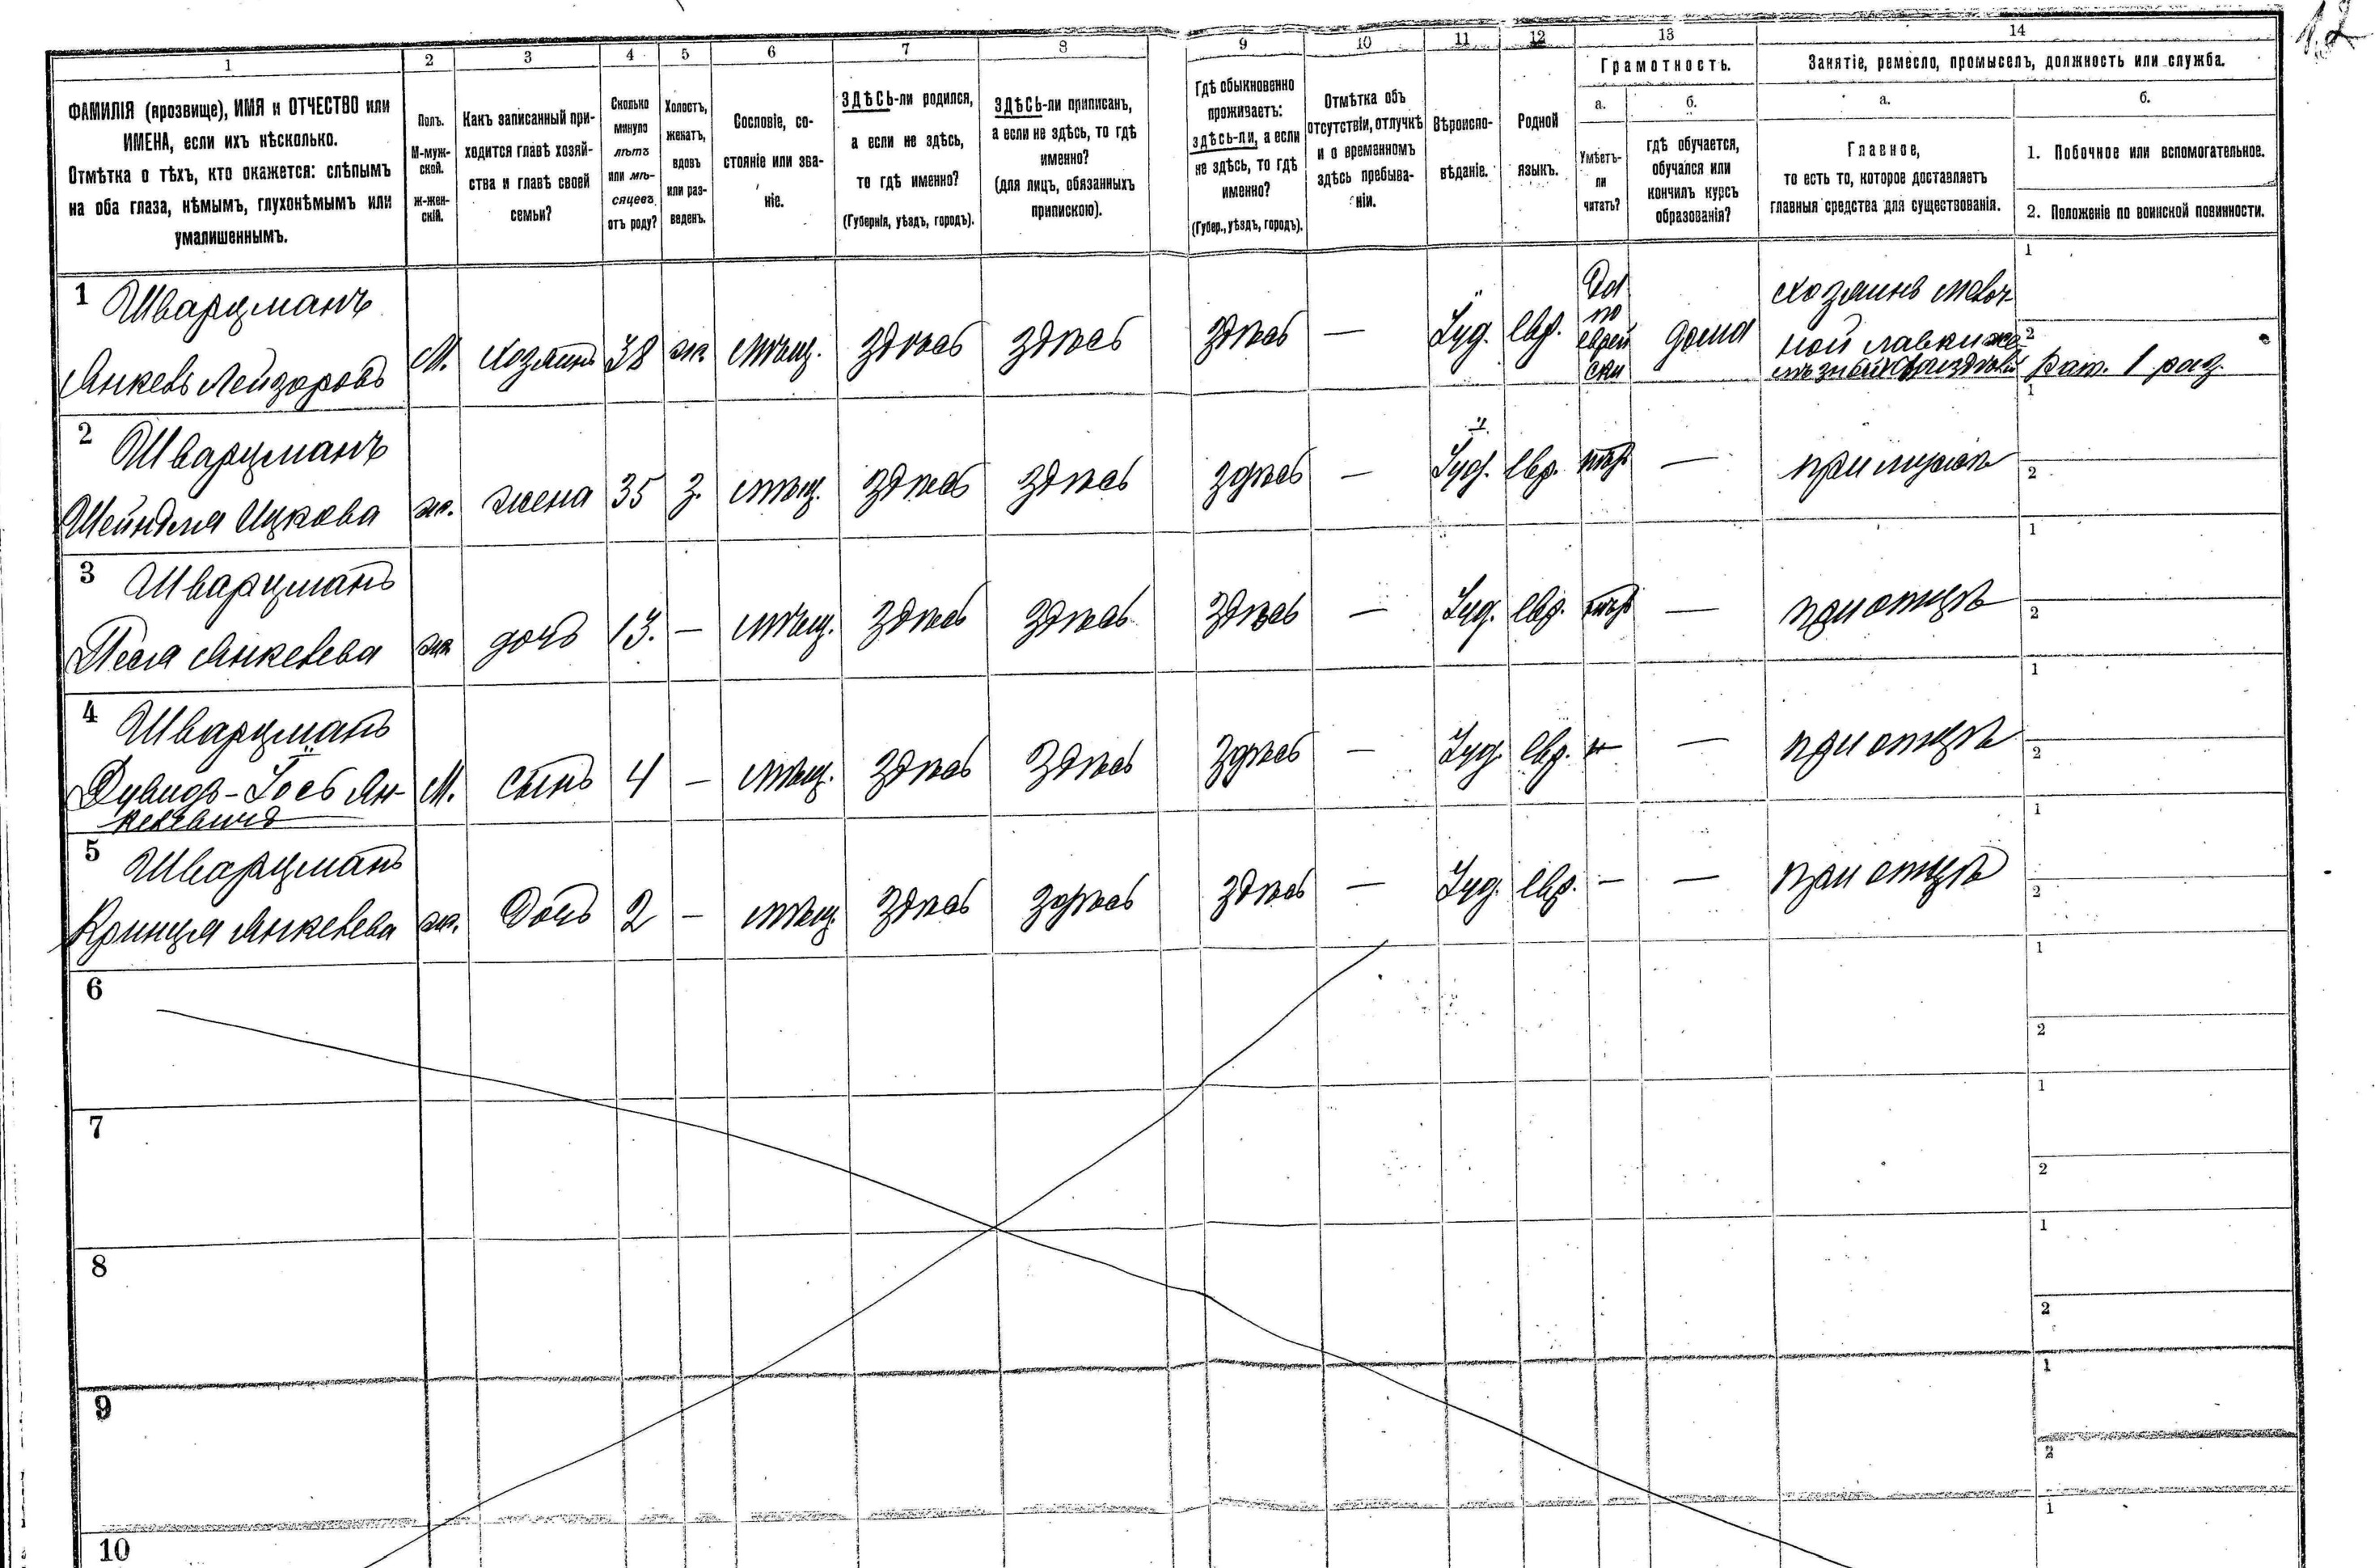 12
1 2 3 4 5 6 7 8 9 10 11 12 13 14
ФАМИЛІЯ (прозвище), ИМЯ и ОТЧЕСТВО или
ИМЕНА, если ихъ нѣсколько.
Отмѣтка о тѣхъ, кто окажется: слѣпымъ
на оба глаза, нѣмымъ, глухонѣмымъ или
умалишеннымъ.
Полъ.
М-муж-
ской.
ж-жен-
скій.
Какъ записанный при-
ходится главѣ хозяй-
ства и главѣ своей
семьи?
Сколько
минуло
лѣтъ
или мѣ-
сяцевъ
отъ роду?
Холостъ,
женатъ,
вдовъ
или раз-
веденъ.
Сословіе, со-
стояніе или зва-
ніе.
ЗДѢСЬ-ли родился,
а если не здѣсь,
то гдѣ именно?
(Губернія, уѣздъ, городъ).
ЗДѢСЬ-ли приписан,
а если не здѣсь, то гдѣ
именно?
(для лицъ, обязанныхъ
припискою).
Гдѣ обыкновенно
проживаетъ:
здѣсь-ли, а если
не здѣсь, то гдѣ
именно?
(Губер., уѣздъ, городъ).
Отмѣтка объ
отсутствіи, отлучкѣ
и о временномъ
здѣсь пребыва-
ніи.
Вѣроиспо-
вѣданіе.
Родной
языкъ.
Грамотность.
а.
Умѣетъ-
ли
читать?
б.
гдѣ обучается,
обучался или
кончилъ курсъ
образованія?
Занятіе, ремесло, промыселъ, должность или служба.
а.
Главное,
то есть то, которое доставляетъ
главныя средства для существованія.
б.
1. Побочное или вспомогательное.
2. Положеніе по воинской повинности.
1 Шварцманъ
Янкевъ Лейзоровъ
М. хозяинъ 38 ж. мѣщ. здѣсь здѣсь здѣсь — Іуд. евр.
Да
по
еврей
ски
дома
хозяинъ мелоч-
ной лавки
1
2 Рат. 1 раз.
2 Шварцманъ
Шейндля Ицкова
ж. жена 35 з. мѣщ. здѣсь здѣсь здѣсь — Іуд. евр. нѣт — при мужѣ
1
2
3 Шварцманъ
Песя Янкевева
ж дочь 13. — мѣщ. здѣсь здѣсь здѣсь — Іуд. евр. нѣт — при отцѣ
1
2
4 Шварцманъ
Дувидъ-Іось Ян-
кевевичъ
М. сынъ 4 — мѣщ. здѣсь здѣсь здѣсь — Іуд. евр. — — при отцѣ
1
2
5 Шварцманъ
Кринця Янкевева
ж. Дочь 2 — мѣщ здѣсь здѣсь здѣсь — Іуд. евр. — — при отцѣ
1
2
6
1
2
7
1
2
8
1
2
9
1
2
10
1